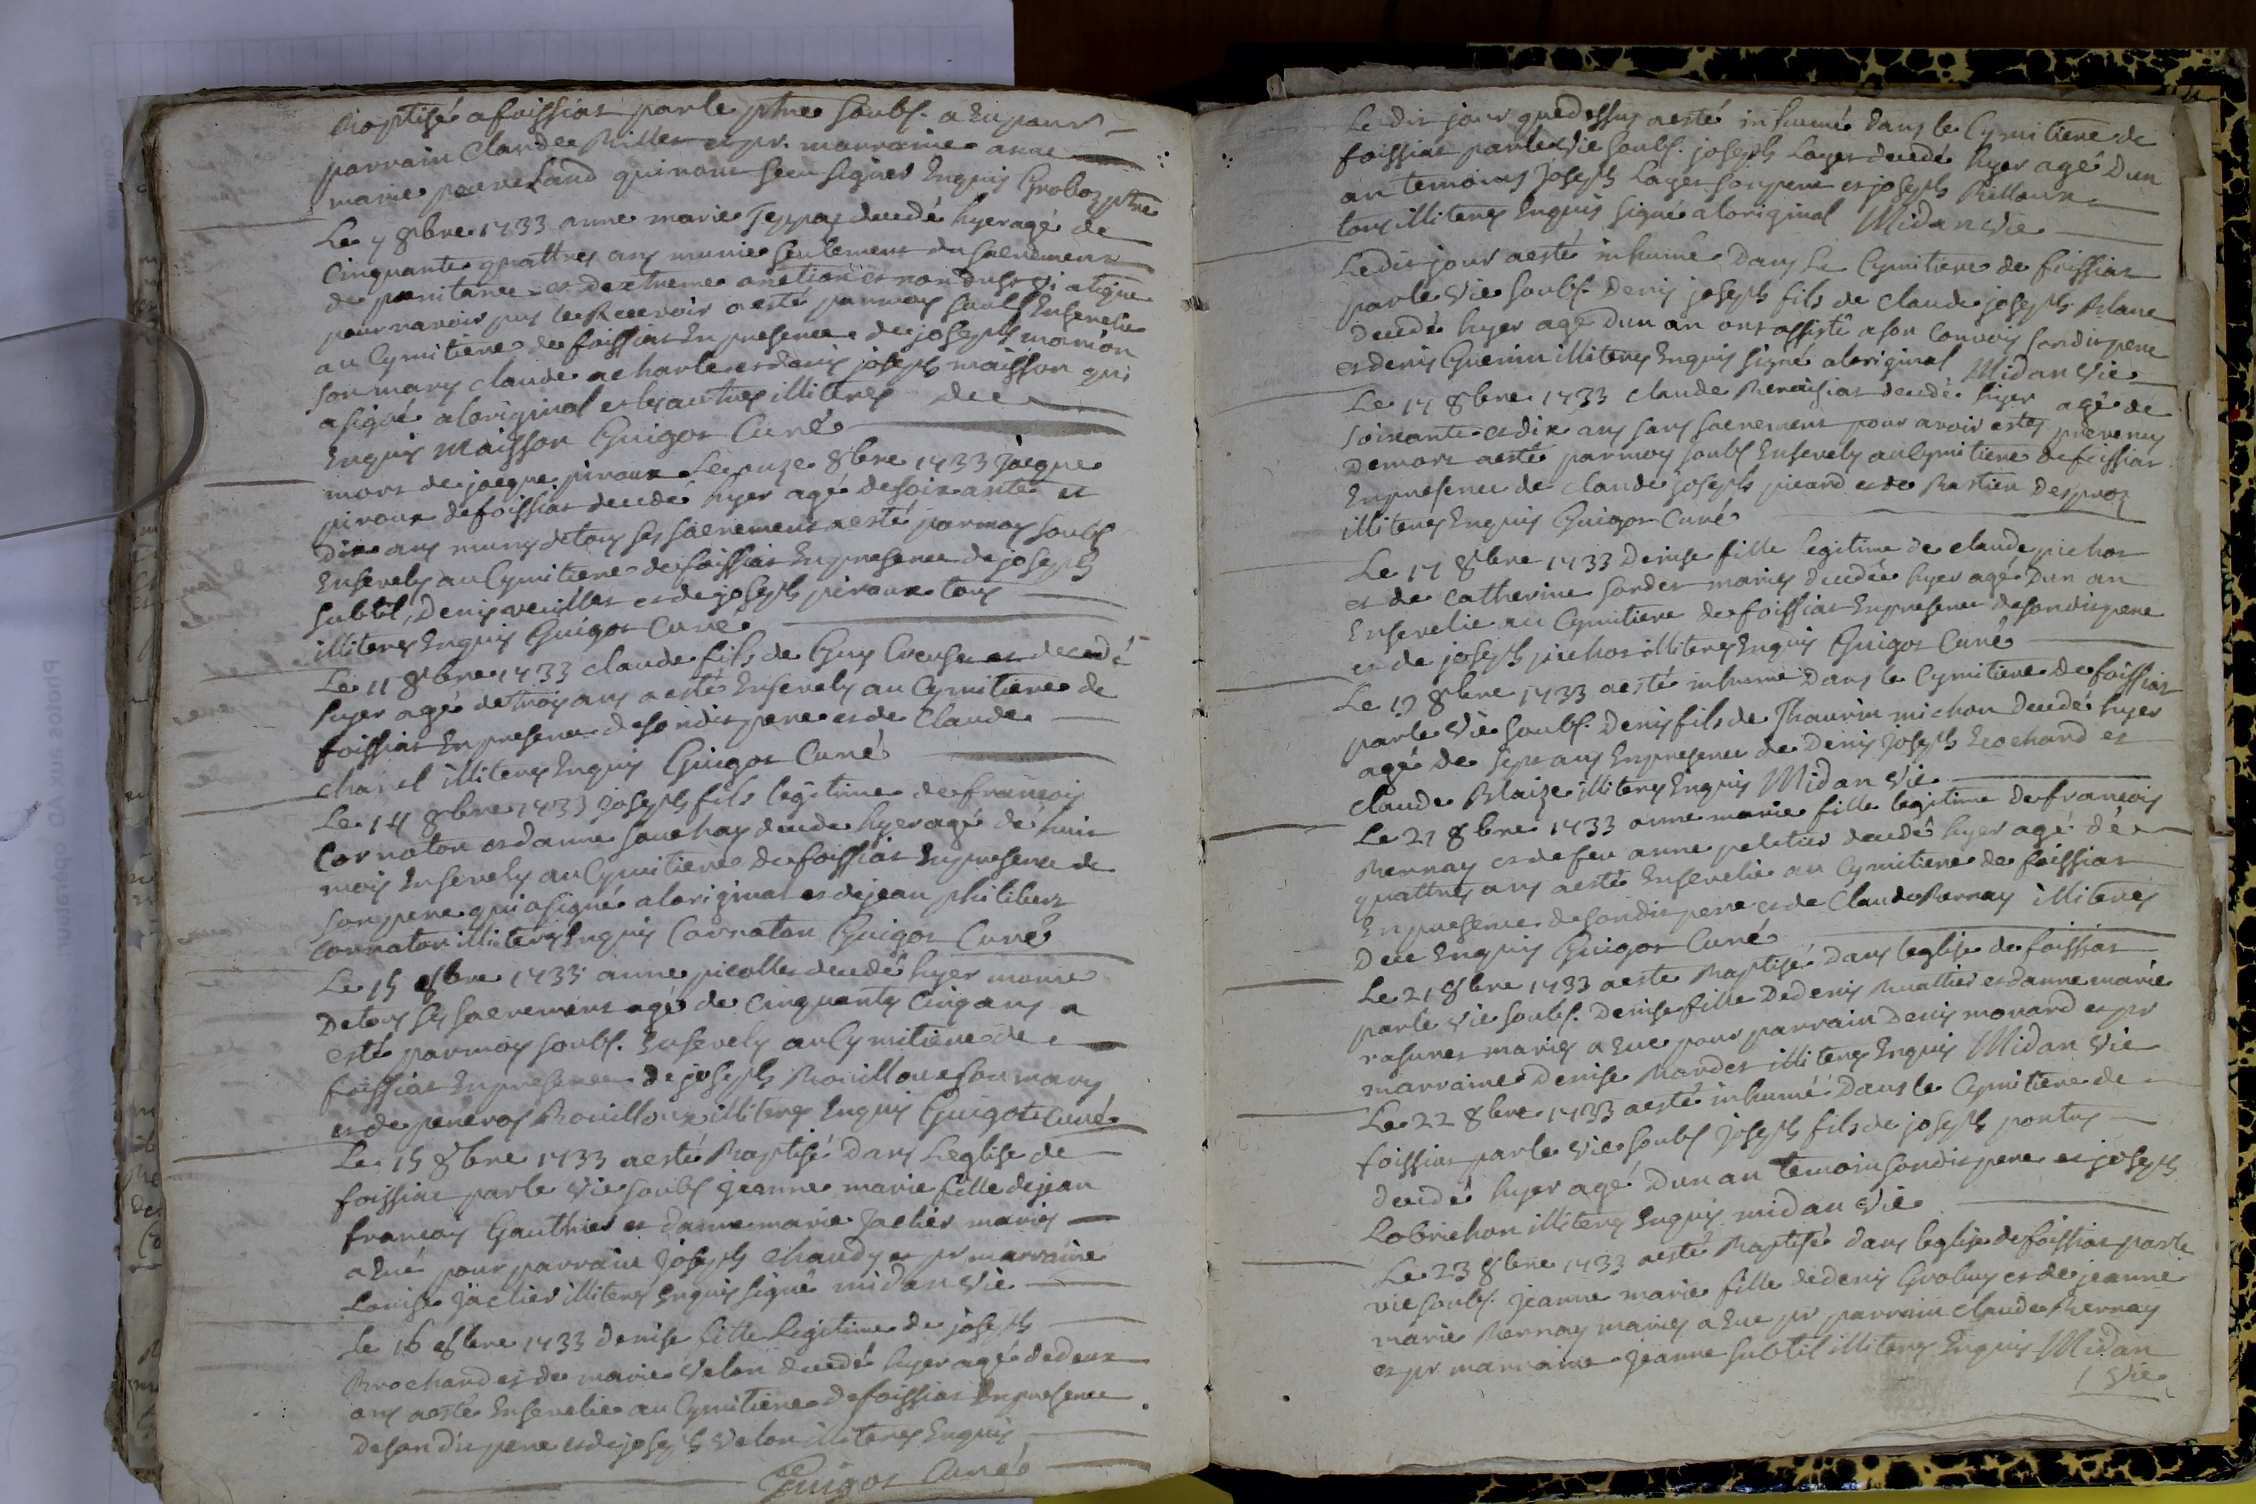 Baptisé a foissiat par le ptre soubs. a eu pour
parrain Claude Billet et pr. marraine anne
marie pauvelland qui n'ont sceu signer Enquis Groboz ptre
Le 7 8bre 1733 anne marie Teppaz decedé hyer agé de
Cinquante quattres ans munie seulement du sacrement
de penitance et dextreme onction et non du st viatique
pour navoir pus le Recevoir a esté par moy soubs Ensevelie
au Cymitiere de foissiat En presence de joseph morion
son mary claude acharle et denis joseph maisson qui
a signé a loriginal et les autres illiteres de ce
Enquis Maisson Guigot Curé
mort de jacque piroux Le onze 8bre 1733 jacque
piroux de foissiat decedé hyer agé de soixante et
dix ans munis de tous ses sacrements a esté par moy soubs
Ensevely au Cymitiere de foissiat En presence de joseph
subtil, Denis veuillet et de joseph piroux tous
illiteres Enquis Guigot Curé
Le 11 8bre 1733 claude fils de Guy Creuset decedé
hyer agé de trois ans a esté Ensevely au Cymitiere de
foissiat En presence de son dit pere et de Claude
charel illiteres Enquis Guigot Curé
Le 14 8bre 1733 joseph fils legitime de francois
Cornaton et danne sauchay decede hyer agé de huit
mois Ensevely au Cymitiere de foissiat En presence de
son pere qui a signé a loriginal et de jean philibert
cornaton illiteres Enquis Cornaton Guigot Curé
Le 15 8bre 1733 anne picollet decedé hyer munie
De tous ses sacrements agé de cinquante cinq ans a
esté par moy soubs. Ensevely au Cymitiere de
foissiat En presence de joseph Rouilloux son mary
et de peneroy Rouilloux illiteres Enquis Guigot Curé
Le 15 8bre 1733 a esté Baptisé Dans Leglise de
foissiat par le vic soubs jeanne marie fille de jean
francois Gauthier et danne marie Jaclier mariés
a Eué pour parrain joseph Chaudy et pr marraine
Louise jaclier illiteres Enquis signé midan vic
Le 16 8bre 1733 denise fille Legitime de joseph
Brochand et de marie velon decedé hyer agé de deux
ans a esté Ensevelie au Cymitiere de foissiat En presence
De son dit pere et de joseph velon illiteres Enquis
Guigot Curé
Le dit jour que dessus a esté inhumé dans le Cymitiere de
foissiat par le vic soubs. joseph Layet decedé hyer agé Dun
an temoins joseph Layet son pere et joseph Rilloux
tous illiteres Enquis signé a loriginal Midan vic
Le dit jour a esté inhumé Dans Le Cymitiere de foissiat
par le vic soubs. Denis joseph fils de Claude joseph Blanc
decedé hyer agé dun an ont assisté a son Convois son dit pere
et denis Guerin illiteres Enquis signé a loriginal Midan vic
Le 17 8bre 1733 claude Revoisiat decedé hyer agé de
soixante et dix ans sans sacrement pour avoir estes prevenus
De mort a esté par moy soubs Ensevely au Cymitiere de foissiat
En presence de claude joseph picard et de Bastien Desproz
illiteres Enquis Guigot Curé
Le 17 8bre 1733 Denise fille legitime de claude pichot
et de catherine sordet mariés decedée hyer agé Dun an
Ensevelie au Cymitiere de foissiat En presence de son dit pere
et de joseph pichot illiteres Enquis Guigot Curé
Le 19 8bre 1733 a esté inhumé Dans le Cymitiere de foissiat
par le vic soubs. Denis fils de Thaurin michon decedé hyer
agé de sept ans En presence de Denis Joseph brochand et
claude Blaize illiteres Enquis Midan vic
Le 21 8bre 1733 anne marie fille legitime de francois
Bernay et de feu anne peletier decedé hyer agé de
quattres ans a esté Ensevelie au Cymitiere de foissiat
En presence de son dit pere et de Claude Bernay illiteres
De ce Enquis Guigot Curé
Le 21 8bre 1733 a este Baptisé Dans leglise de foissiat
par le vic soubs. Denise fille De denis Buattier et danne marie
rasuret mariés a Eue pour parrain Denis morard et pr
marraine Denise Bardet illiteres Enquis Midan vic
Le 22 8bre 1733 a esté inhumé Dans le Cymitiere de
foissiat par le vic soubs joseph fils de joseph pontus
decedé hyer agé Dun an temoin son dit pere et joseph
Lobrichon illiteres Enquis midan vic
Le 23 8bre 1733 a esté Baptisé dans leglise de foissiat par le
vic soubs. jeanne marie fille de denis Grobuy et de jeanne
marie Bernay mariés a Eue pr parrain claude Bernay
et pr marraine jeanne subtil illiteres Enquis Midan
vic